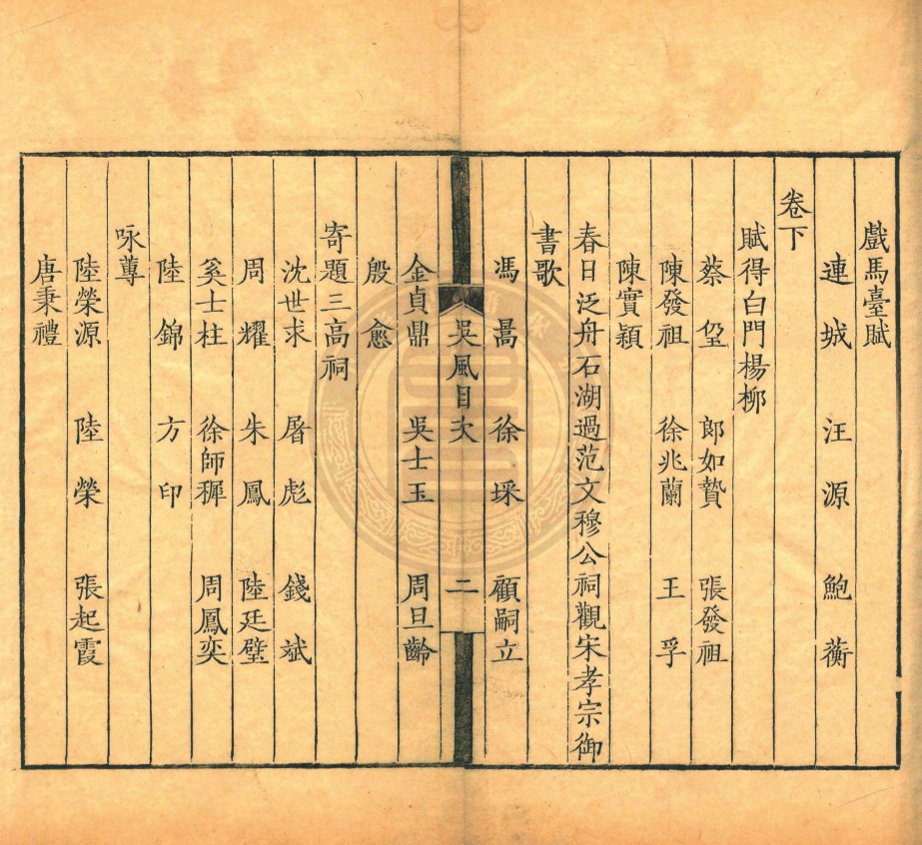 戲馬臺賦
連城 汪源 鮑蘅
卷下
賦得白門楊柳
蔡 郎如贄 張發祖
陳發祖 徐兆蘭 王孚
陳實穎
春日泛舟石湖過范文穆公祠觀宋孝宗御
書歌
馮暠 徐埰 顧嗣立
吳風目次 二
金貞鼎 吳士玉 周旦齡
殷愈
寄題三高祠
沈世求 屠彪 錢斌
周耀 朱鳳 陸廷璧
奚士柱 徐師穉 周鳳奕
陸錦 方印
咏蓴
陸榮源 陸榮 張起霞
唐秉禮